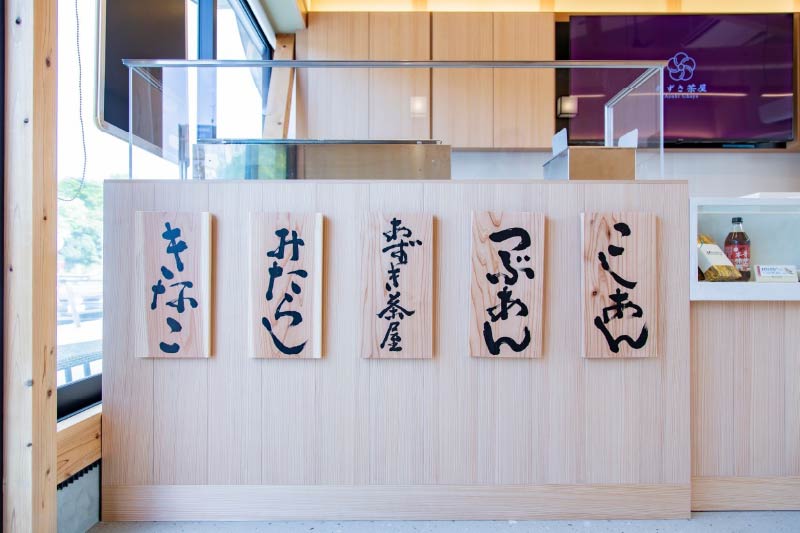 こしあん
つぶあん
あずき茶屋
みたらし
きなこ
あずき茶屋